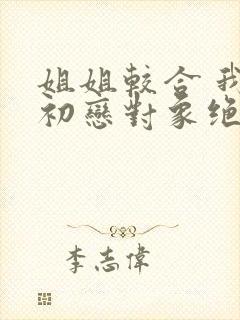 姐姐較合我
初戀對象絕
李志偉